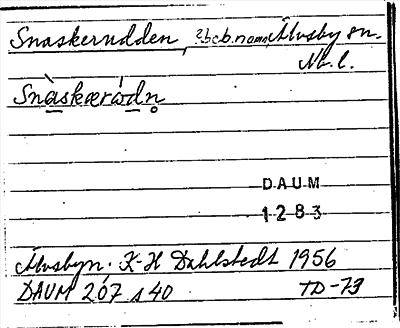 Snaskerudden, ?bcb.namn, Älvsby sn.
Nb. l.
Snàskærúdn̥
DAUM
1283
Älvsbyn. K-H Dahlstedt 1956
DAUM 267 s 40 TD-73